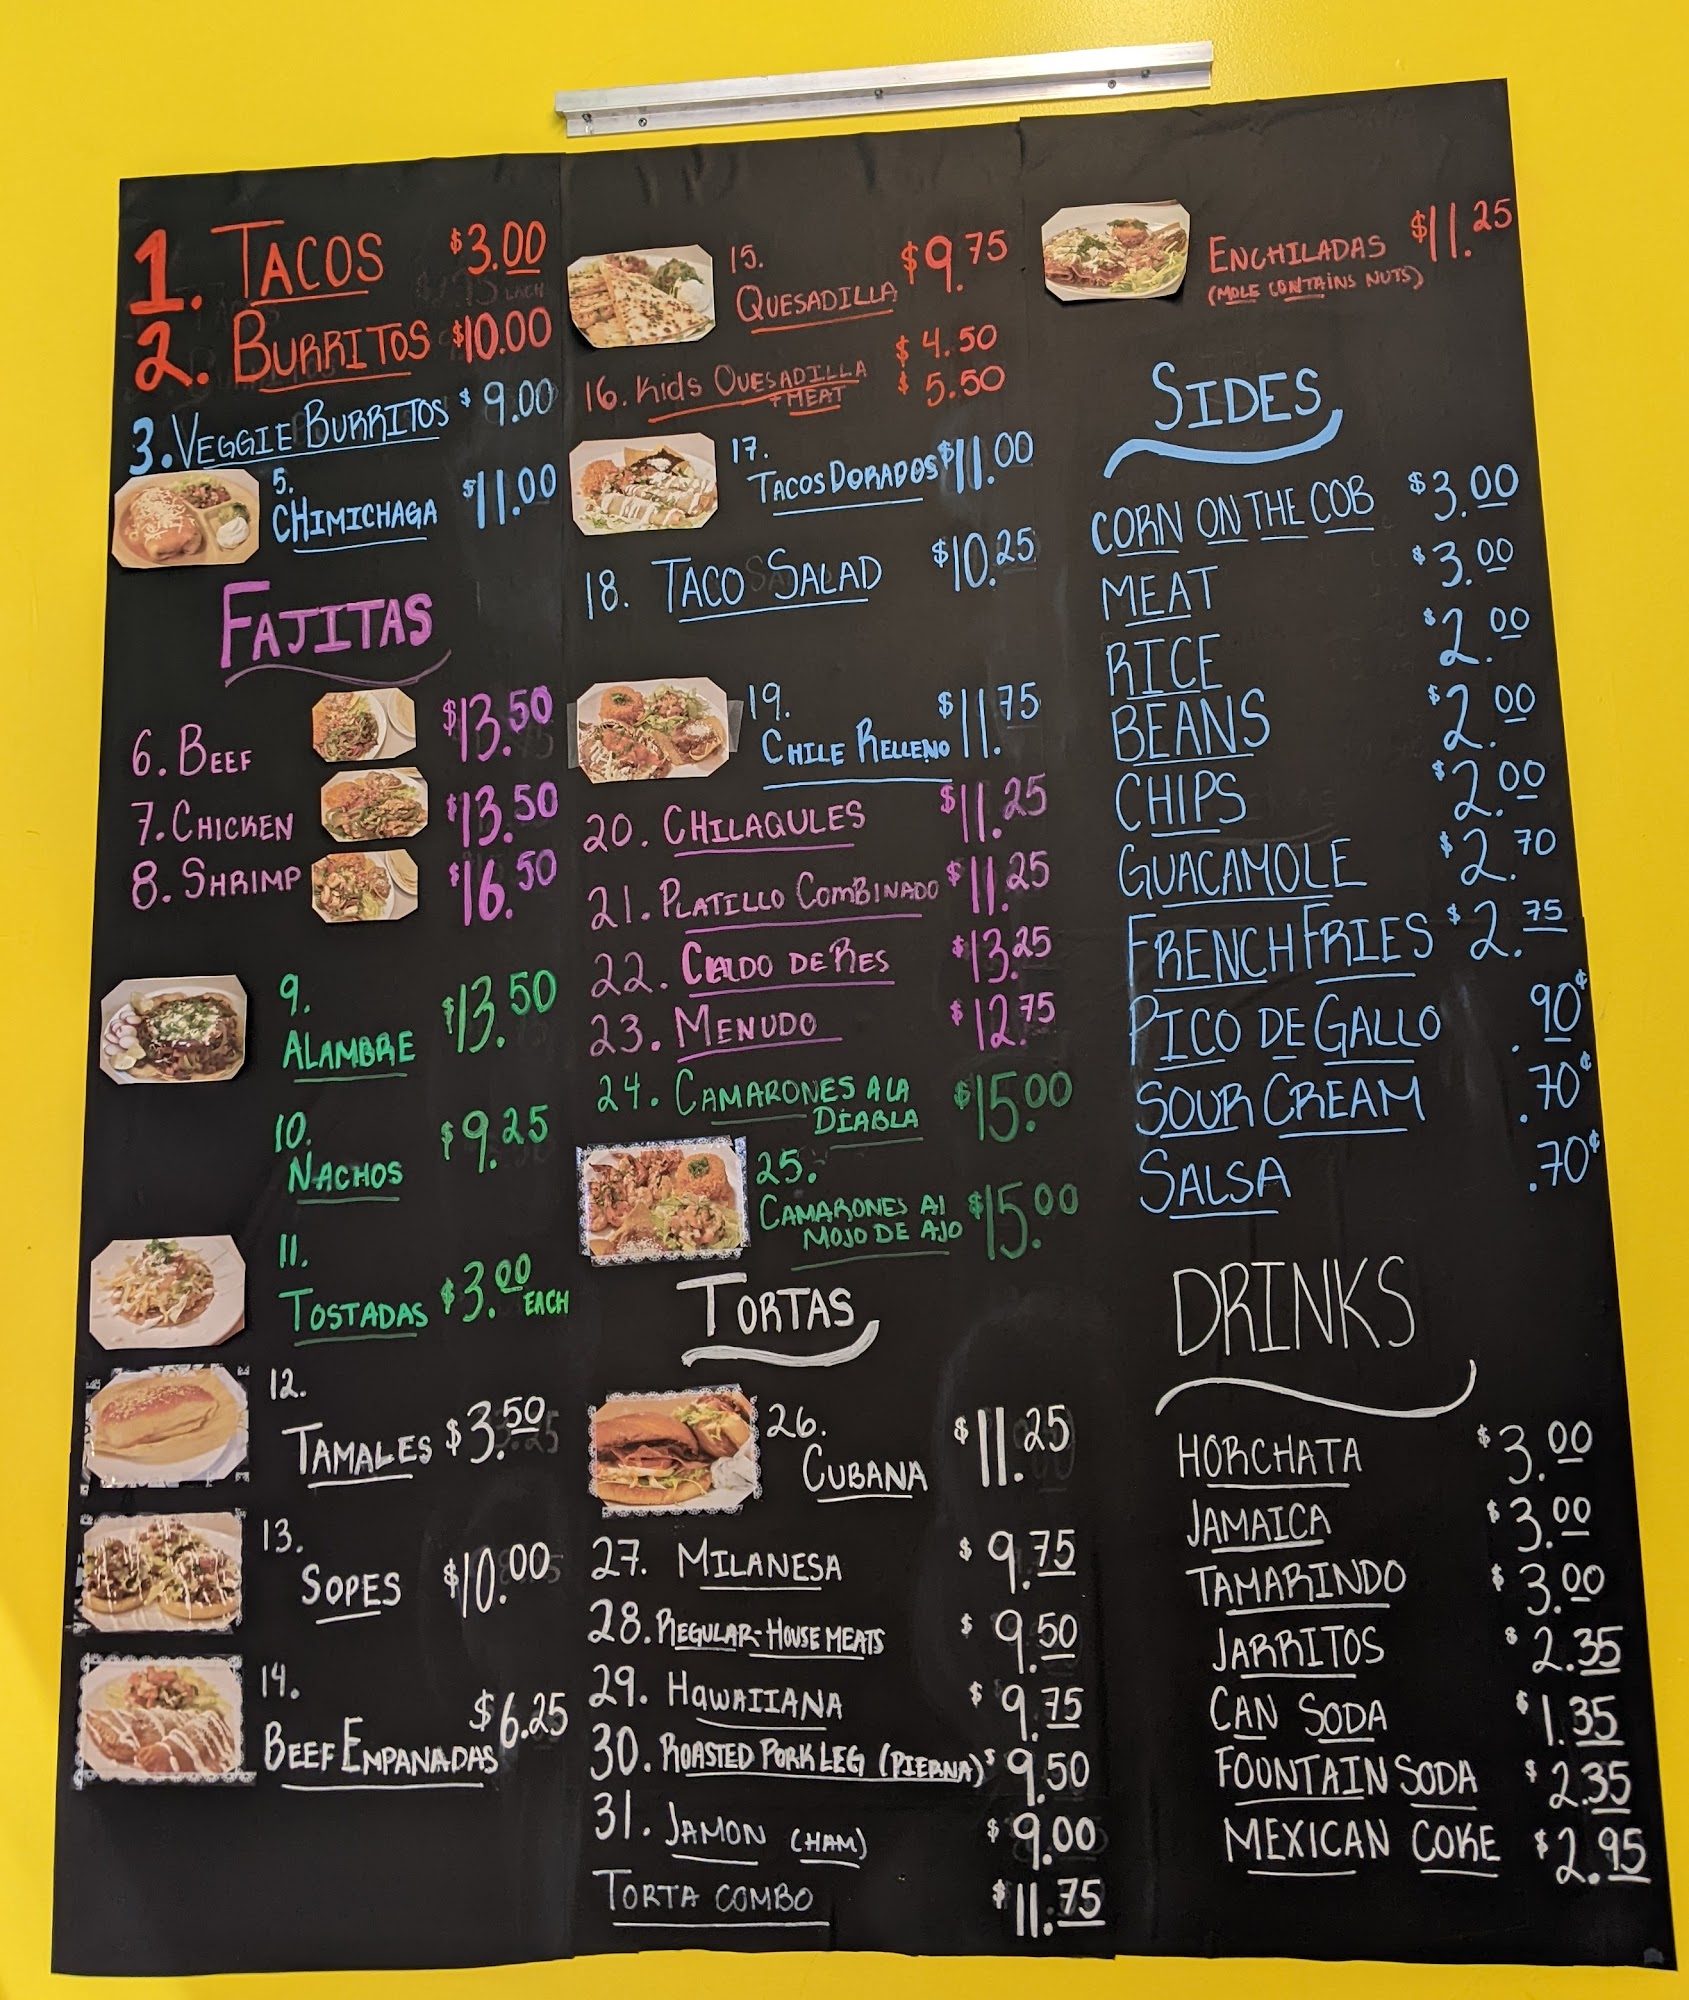 1. TACOS $3.00
2. BURRITOS $10.00
3. VEGGIE BURRITOS $9.00
5.
CHIMICHAGA $11.00
FAJITAS
6. BEEF $13.50
7. CHICKEN $13.50
8. SHRIMP $16.50
9.
ALAMBRE $13.50
10.
NACHOS $9.25
11.
TOSTADAS $3.00 EACH
12.
TAMALES $3.50
13.
SOPES $10.00
14.
BEEF EMPANADAS $6.25
15.
QUESADILLA $9.75
16. Kids QUESADILLA $4.50
+ MEAT $5.50
17.
TACOS DORADOS $11.00
18. TACO SALAD $10.25
19.
CHILE RELLENO $11.75
20. CHILAQULES $11.25
21. PLATILLO COMBINADO $11.25
22. CALDO DE RES $13.25
23. MENUDO $12.75
24. CAMARONES A LA
DIABLA $15.00
25.
CAMARONES Al
MOJO DE AJO $15.00
TORTAS
26.
CUBANA $11.25
27. MILANESA $9.75
28. REGULAR-HOUSE MEATS $9.50
29. HaWAIIANA $9.75
30. ROASTED PORK LEG (PIERNA) $9.50
31. JAMON (HAM) $9.00
TORTA COMBO $11.75
ENCHILADAS $11.25
(MOLE CONTAINS NUTS)
SIDES
CORN ON THE COB $3.00
MEAT $3.00
RICE $2.00
BEANS $2.00
CHIPS $2.00
GUACAMOLE $2.70
FRENCH FRIES $2.75
PICO DE GALLO .90¢
SOUR CREAM .70¢
SALSA .70¢
DRINKS
HORCHATA $3.00
JAMAICA $3.00
TAMARINDO $3.00
JARRITOS $2.35
CAN SODA $1.35
FOUNTAIN SODA $2.35
MEXICAN COKE $2.95